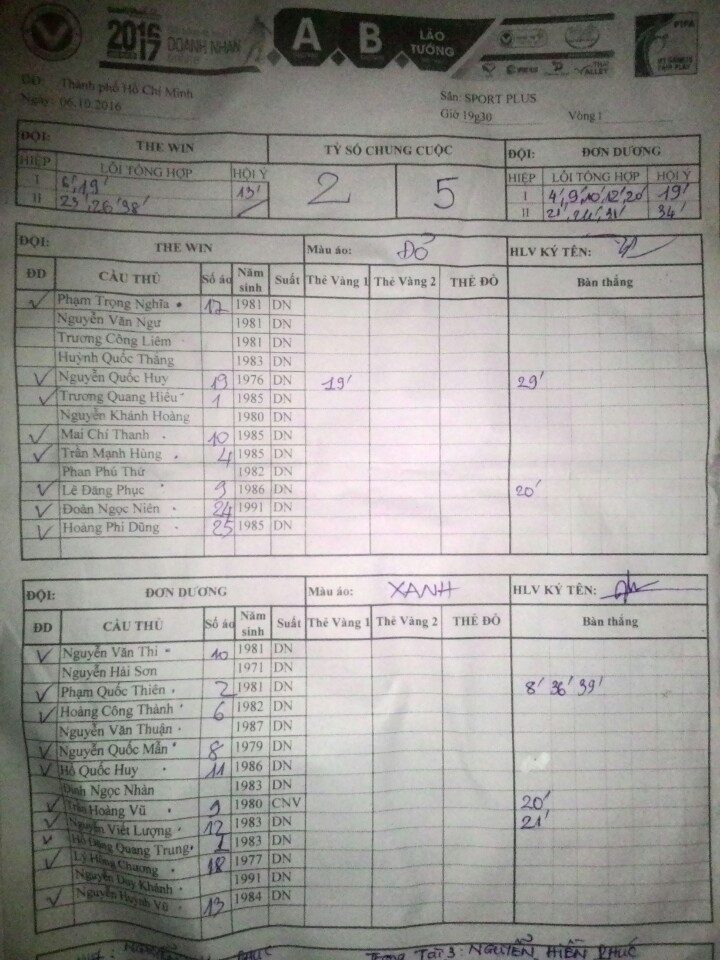 2016
2017
DOANH NHÂN
A B LÃO TƯỚNG
FIFA
MY GAME IS FAIR PLAY
DĐ: Thành phố Hồ Chí Minh
Sân: SPORT PLUS
Ngày: 06.10.2016
Giờ 19g30 Vòng 1
ĐỘI: THE WIN TỶ SỐ CHUNG CUỘC ĐỘI: ĐƠN DƯƠNG
HIỆP LỖI TỔNG HỢP HỘI Ý 2 5 HIỆP LỖI TỔNG HỢP HỘI Ý
I 6', 19' 13' I 4', 9', 10', 12', 20' 19'
II 23', 26' 38' II 21', 24', 31' 34'
ĐỘI: THE WIN Màu áo: ĐỎ HLV KÝ TÊN:
ĐD CẦU THỦ Số áo Năm sinh Suất Thẻ Vàng 1 Thẻ Vàng 2 THẺ ĐỎ Bàn thắng
Phạm Trọng Nghĩa 12 1981 DN
Nguyễn Văn Ngư 1981 DN
Trương Công Liêm 1981 DN
Huỳnh Quốc Thắng 1983 DN
Nguyễn Quốc Huy 19 1976 DN 19' 29'
Trương Quang Hiếu 1 1985 DN
Nguyễn Khánh Hoàng 1980 DN
Mai Chí Thanh 10 1985 DN
Trần Mạnh Hùng 4 1985 DN
Phan Phú Thứ 1982 DN
Lê Đăng Phục 9 1986 DN 20'
Đoàn Ngọc Niên 24 1991 DN
Hoàng Phi Dũng 25 1985 DN
ĐỘI: ĐƠN DƯƠNG Màu áo: XANH HLV KÝ TÊN:
ĐD CẦU THỦ Số áo Năm sinh Suất Thẻ Vàng 1 Thẻ Vàng 2 THẺ ĐỎ Bàn thắng
Nguyễn Văn Thi 10 1981 DN
Nguyễn Hải Sơn 1971 DN
Phạm Quốc Thiên 2 1981 DN 8' 36' 39'
Hoàng Công Thành 6 1982 DN
Nguyễn Văn Thuận 1987 DN
Nguyễn Quốc Mẫn 8 1979 DN
Hồ Quốc Huy 11 1986 DN
Đinh Ngọc Nhàn 1983 DN
Trần Hoàng Vũ 9 1980 CNV 20'
Nguyễn Viết Lượng 12 1983 DN 21'
Hồ Đặng Quang Trung 1 1983 DN
Lý Hồng Chương 18 1977 DN
Nguyễn Duy Khánh 1991 DN
Nguyễn Huỳnh Vũ 13 1984 DN
Trọng Tài 3: NGUYỄN HIỀN PHÚC